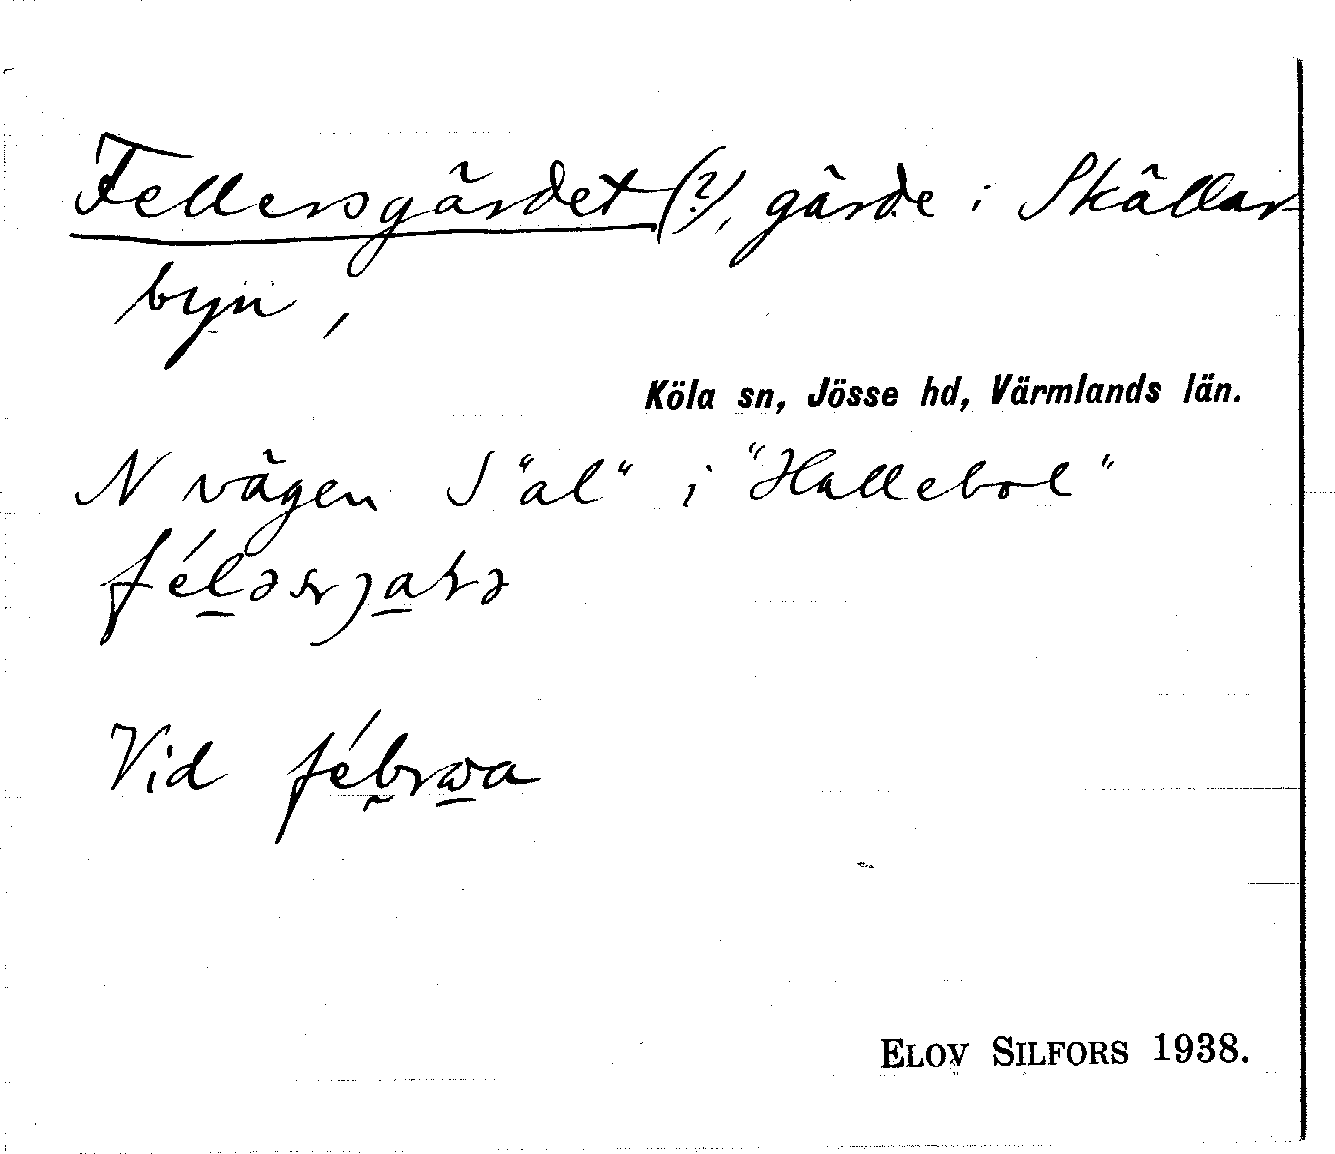 Fellersgärdet (?), gärde i Skällar-
byn,
Köla sn, Jösse hd, Värmlands län.
N vägen S "al" i "Hallebol"
Vid
ELOV SILFORS 1938.